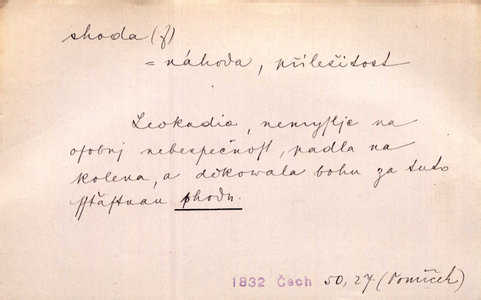 shoda (f)
= náhoda, příležitost
Leokadia, nemyslje na
osobnj nebezpečnost, padla na
kolena, a děkowala bohu za tuto
sstiastnau shodu.
1832 Čech 50,27 (Tomíček)